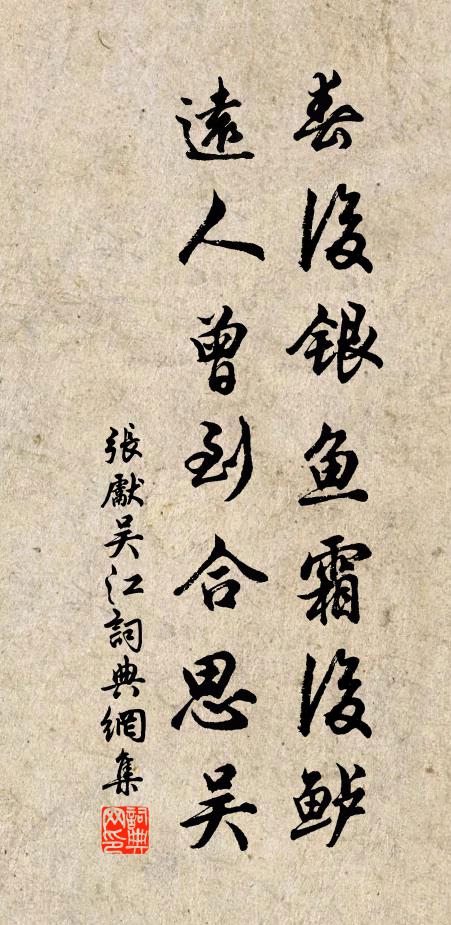 春後銀鱼霜後鲈
遠人曾到合思吴
張獻吴江詞典網集
詞典网印